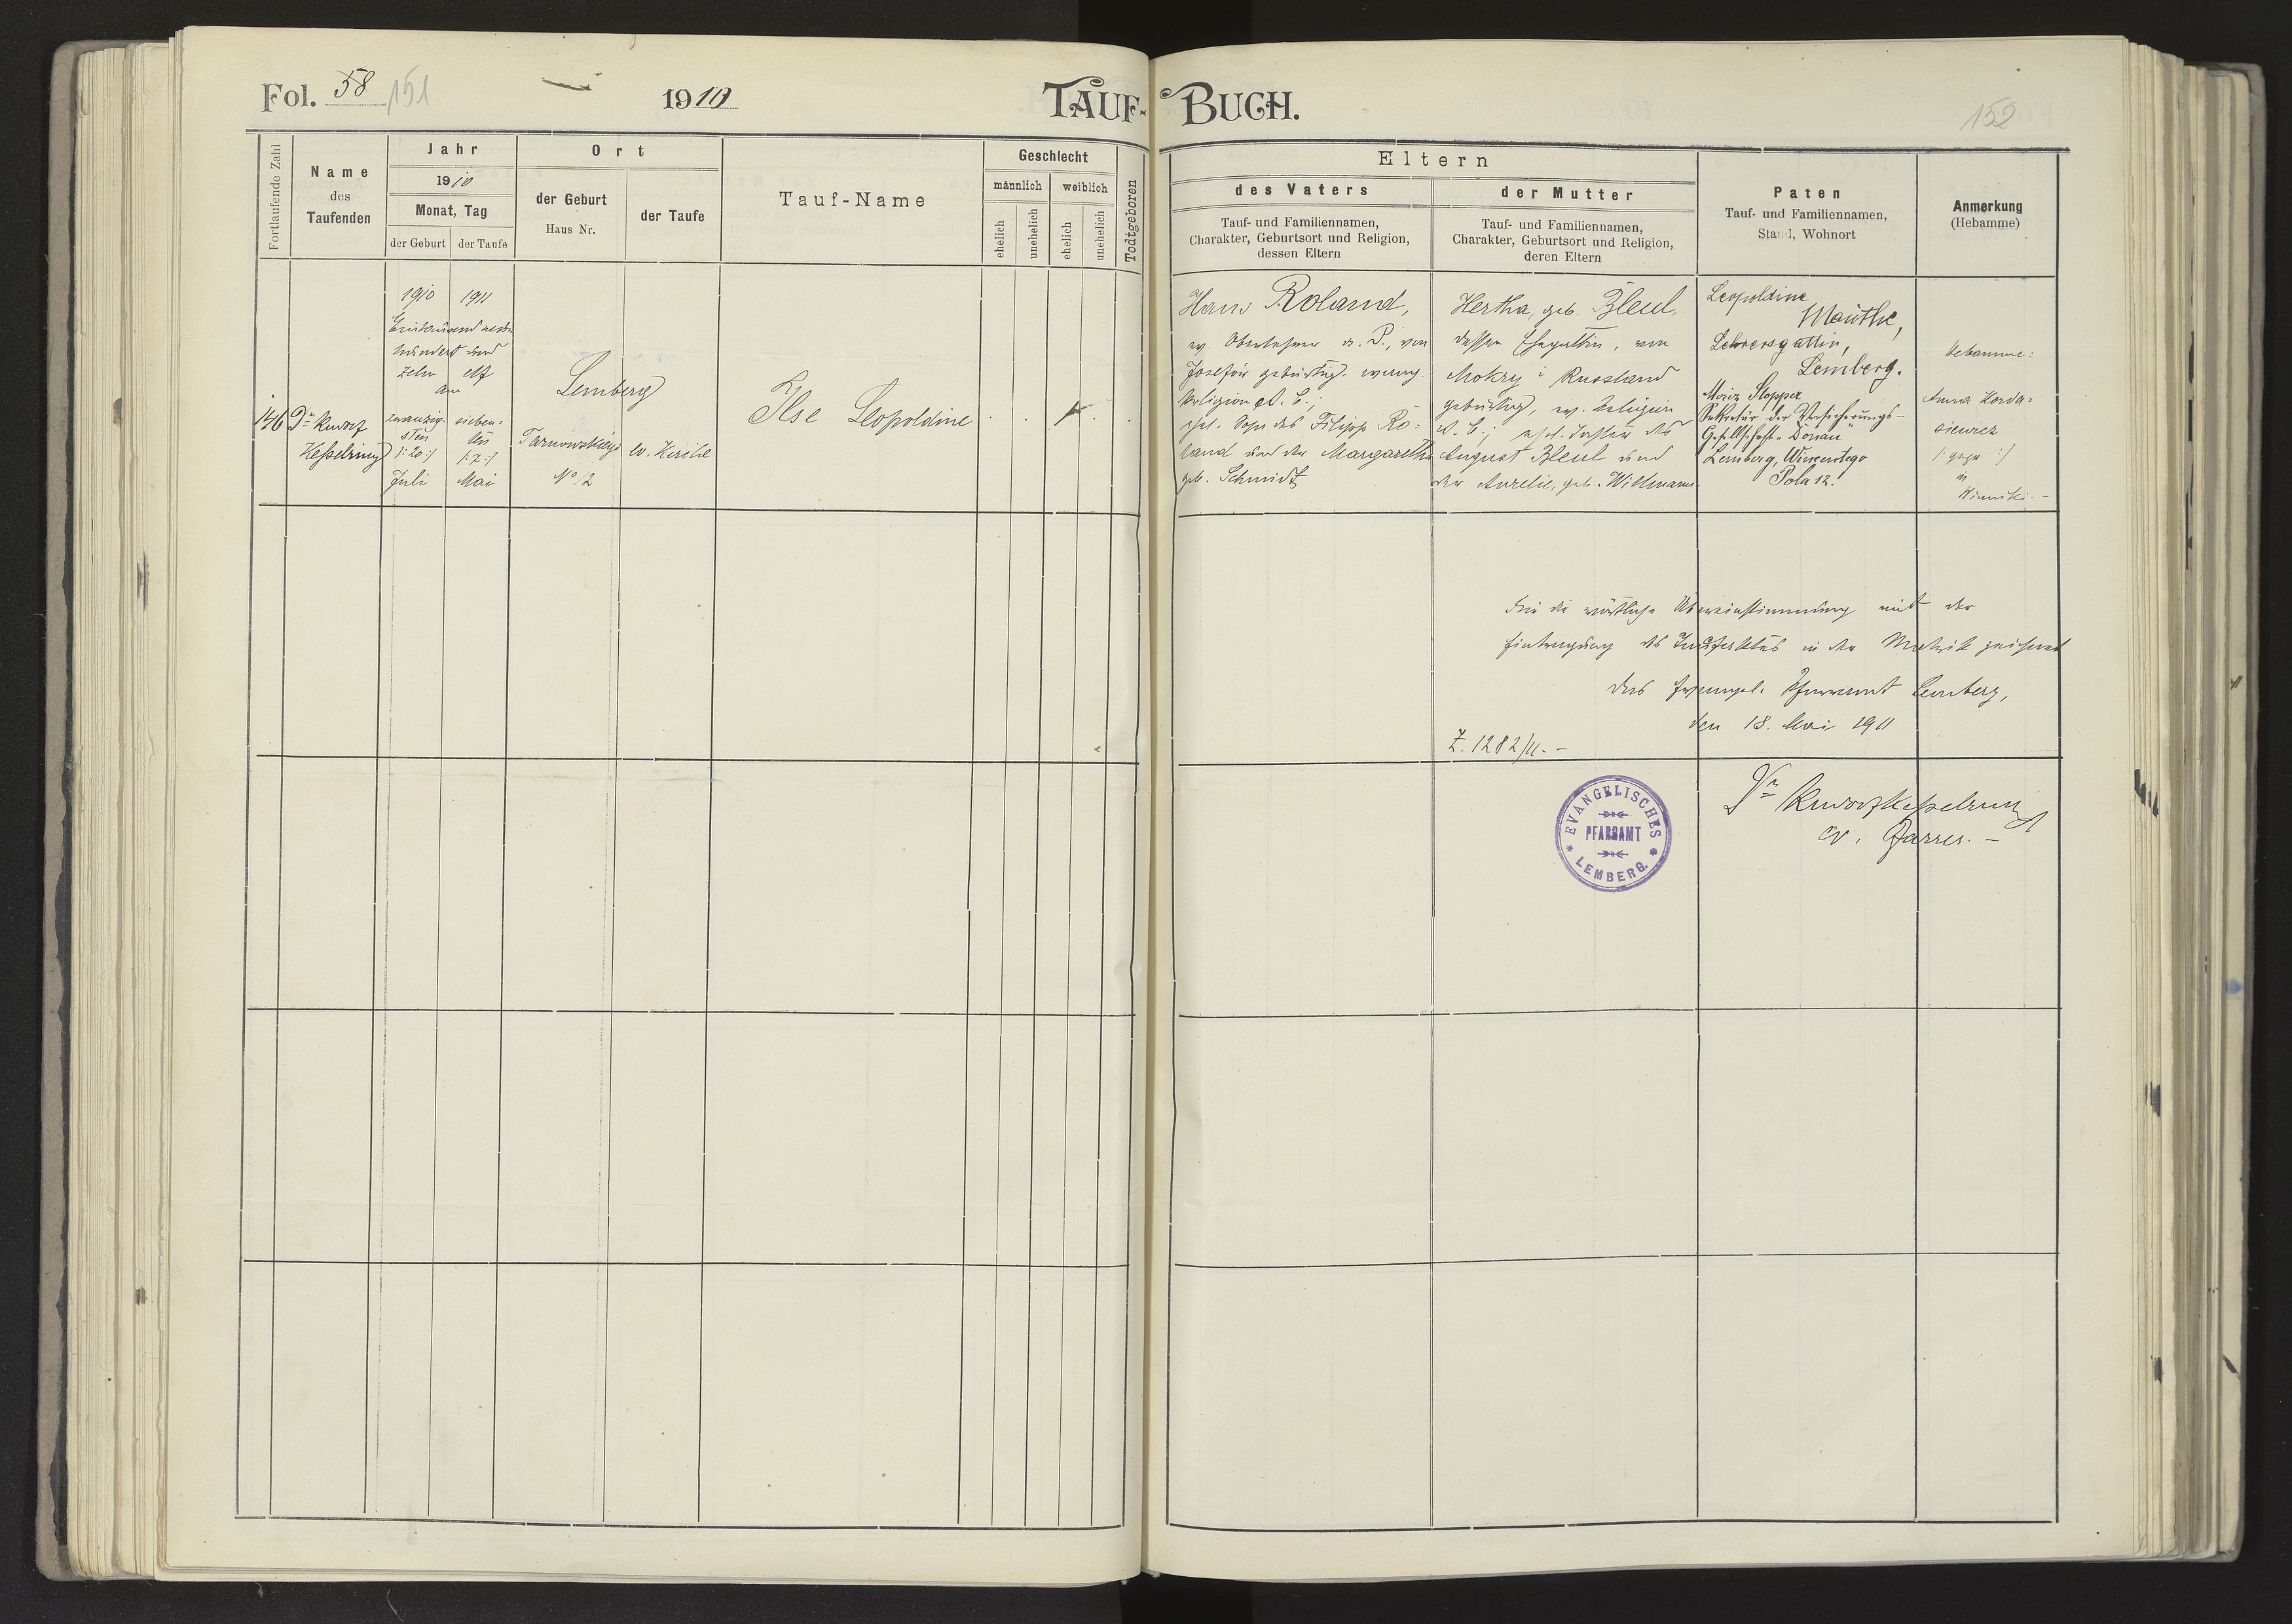 Fol. 58 151
1910
TAUF-BUCH.
152
Fortlaufende Zahl
Name
des
Taufenden
Jahr
1910
Monat, Tag
der Geburt
der Taufe
Ort
der Geburt
Haus Nr.
der Taufe
Tauf-Name
Geschlecht
männlich
weiblich
ehelich
unehelich
ehelich
unehelich
Todtgeboren
Eltern
des Vaters
Tauf- und Familiennamen,
Charakter, Geburtsort und Religion,
dessen Eltern
der Mutter
Tauf- und Familiennamen,
Charakter, Geburtsort und Religion,
deren Eltern
Paten
Tauf- und Familiennamen,
Stand, Wohnort
Anmerkung
(Hebamme)
146
Dr Kesselring
1910 1911
Eintausend neun
hundert und
zehn elf
am
zwanzig- sieben-
sten ten
/:20:/ /:7:/
Juli Mai
Lemberg
Tarnowskiego
No 2
ev. Kirche
Ilse Leopoldine
Hans Roland,
ev. Oberlehrer a. P., von
Josefów gebürtig, evang.
Religion A. C.;
ehel. Sohn des Filipp Ro-
land und der Margaretha
geb. Schmidt
Hertha, geb. Bleul,
dessen Ehegattin, von
Mokry i Russland
gebürtig, ev. Religion
A. C.; ehel. Tochter des
August Bleul und
der Aurelie, geb. Willmann
Leopoldine
Mauthe,
Lehrersgattin,
Lemberg.
Moriz Stopper
Sekretär der Versicherungs-
Gesellschaft "Donau"
Lemberg, Wincentego
Pola 12.
Hebamme:
Anna Korda-
siewicz
/: gepr :/
in
Winniki. -
Für die wörtliche Übereinstimmung mit der
Eintragung des Taufaktes in der Matrik zeichnet
das Evangel. Pfarramt Lemberg,
den 18. Mai 1911
Z. 1282/11. -
EVANGELISCHES
PFARRAMT
LEMBERG.
Dr Kesselring
ev. Pfarrer. -